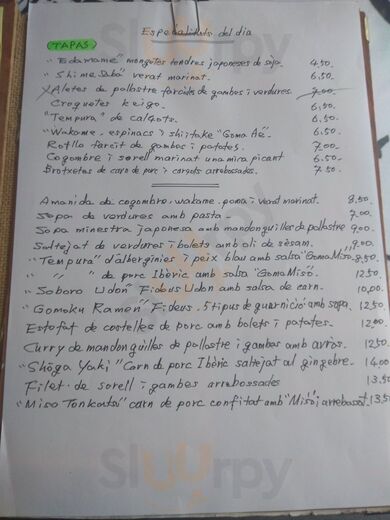 Especialitats del dia
TAPAS
"Edamame" mongetes tendres japoneses de soja. 4,50.
"Shimesaba" verat marinat. 6,50.
Aletes de pollastre farcides de gambes i verdures. 7,00
Croquetes keigo. 6,50.
"Tempura" de calçots. 6,50.
"Wakame, espinacs i shiitake "Goma Aé". 6.50
Rotllo farcit de gambes i patates. 7,00
Cogombre i sorell marinat una mica picant 6.50-
Brotxetes de carn de porc i carxofs arrebossades. 7.50-
Amanida de cogombre, wakame, poma i verat marinat. 8,50.
Sopa de verdures amb pasta - 7.00
Sopa minestra japonesa amb mandonguilles de pollastre 9,00.
Saltejat de verdures i bolets amb oli de sèsam. 9,00.
"Tempura" d'albergínies i peix blau amb salsa "Goma Miso". 8,50.
" " de porc Ibèric amb salsa "Goma Miso". 12,50
"Soboro Udon" Fideus Udon amb salsa de carn. 10,00.
"Gomoku Ramen" Fideus, 5 tipus de guarnició amb sopa. 12,50
Estofat de costelles de porc amb bolets i patates. 12,00
Curry de mandonguilles de pollastre i gambes amb arròs. 12,50
"Shōga Yaki" Carn de porc Ibèric saltejat al gingebre. 14,00
Filet de sorell i gambes arrebossades 13.50
"Miso Tonkatsu" carn de porc confitat amb "Miso" i arrebossat. 13,50
Sluurpy
Sluurpy